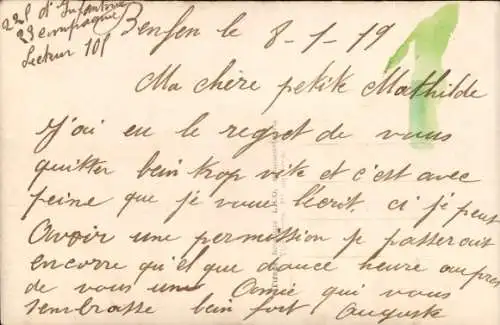 221 d'Infanterie
23 compagnie
Secteur 101
Benfen le 8-1-19
Ma chère petite Mathilde
J'ai eu le regret de vous
quitter bein trop vite et c'est avec
peine que je vous l'écrit, ci je peux
Avoir une permission je passerai
encorre qu'el que douce heure aupres
de vous une Amie qui vous
sembrasse bein fort Auguste